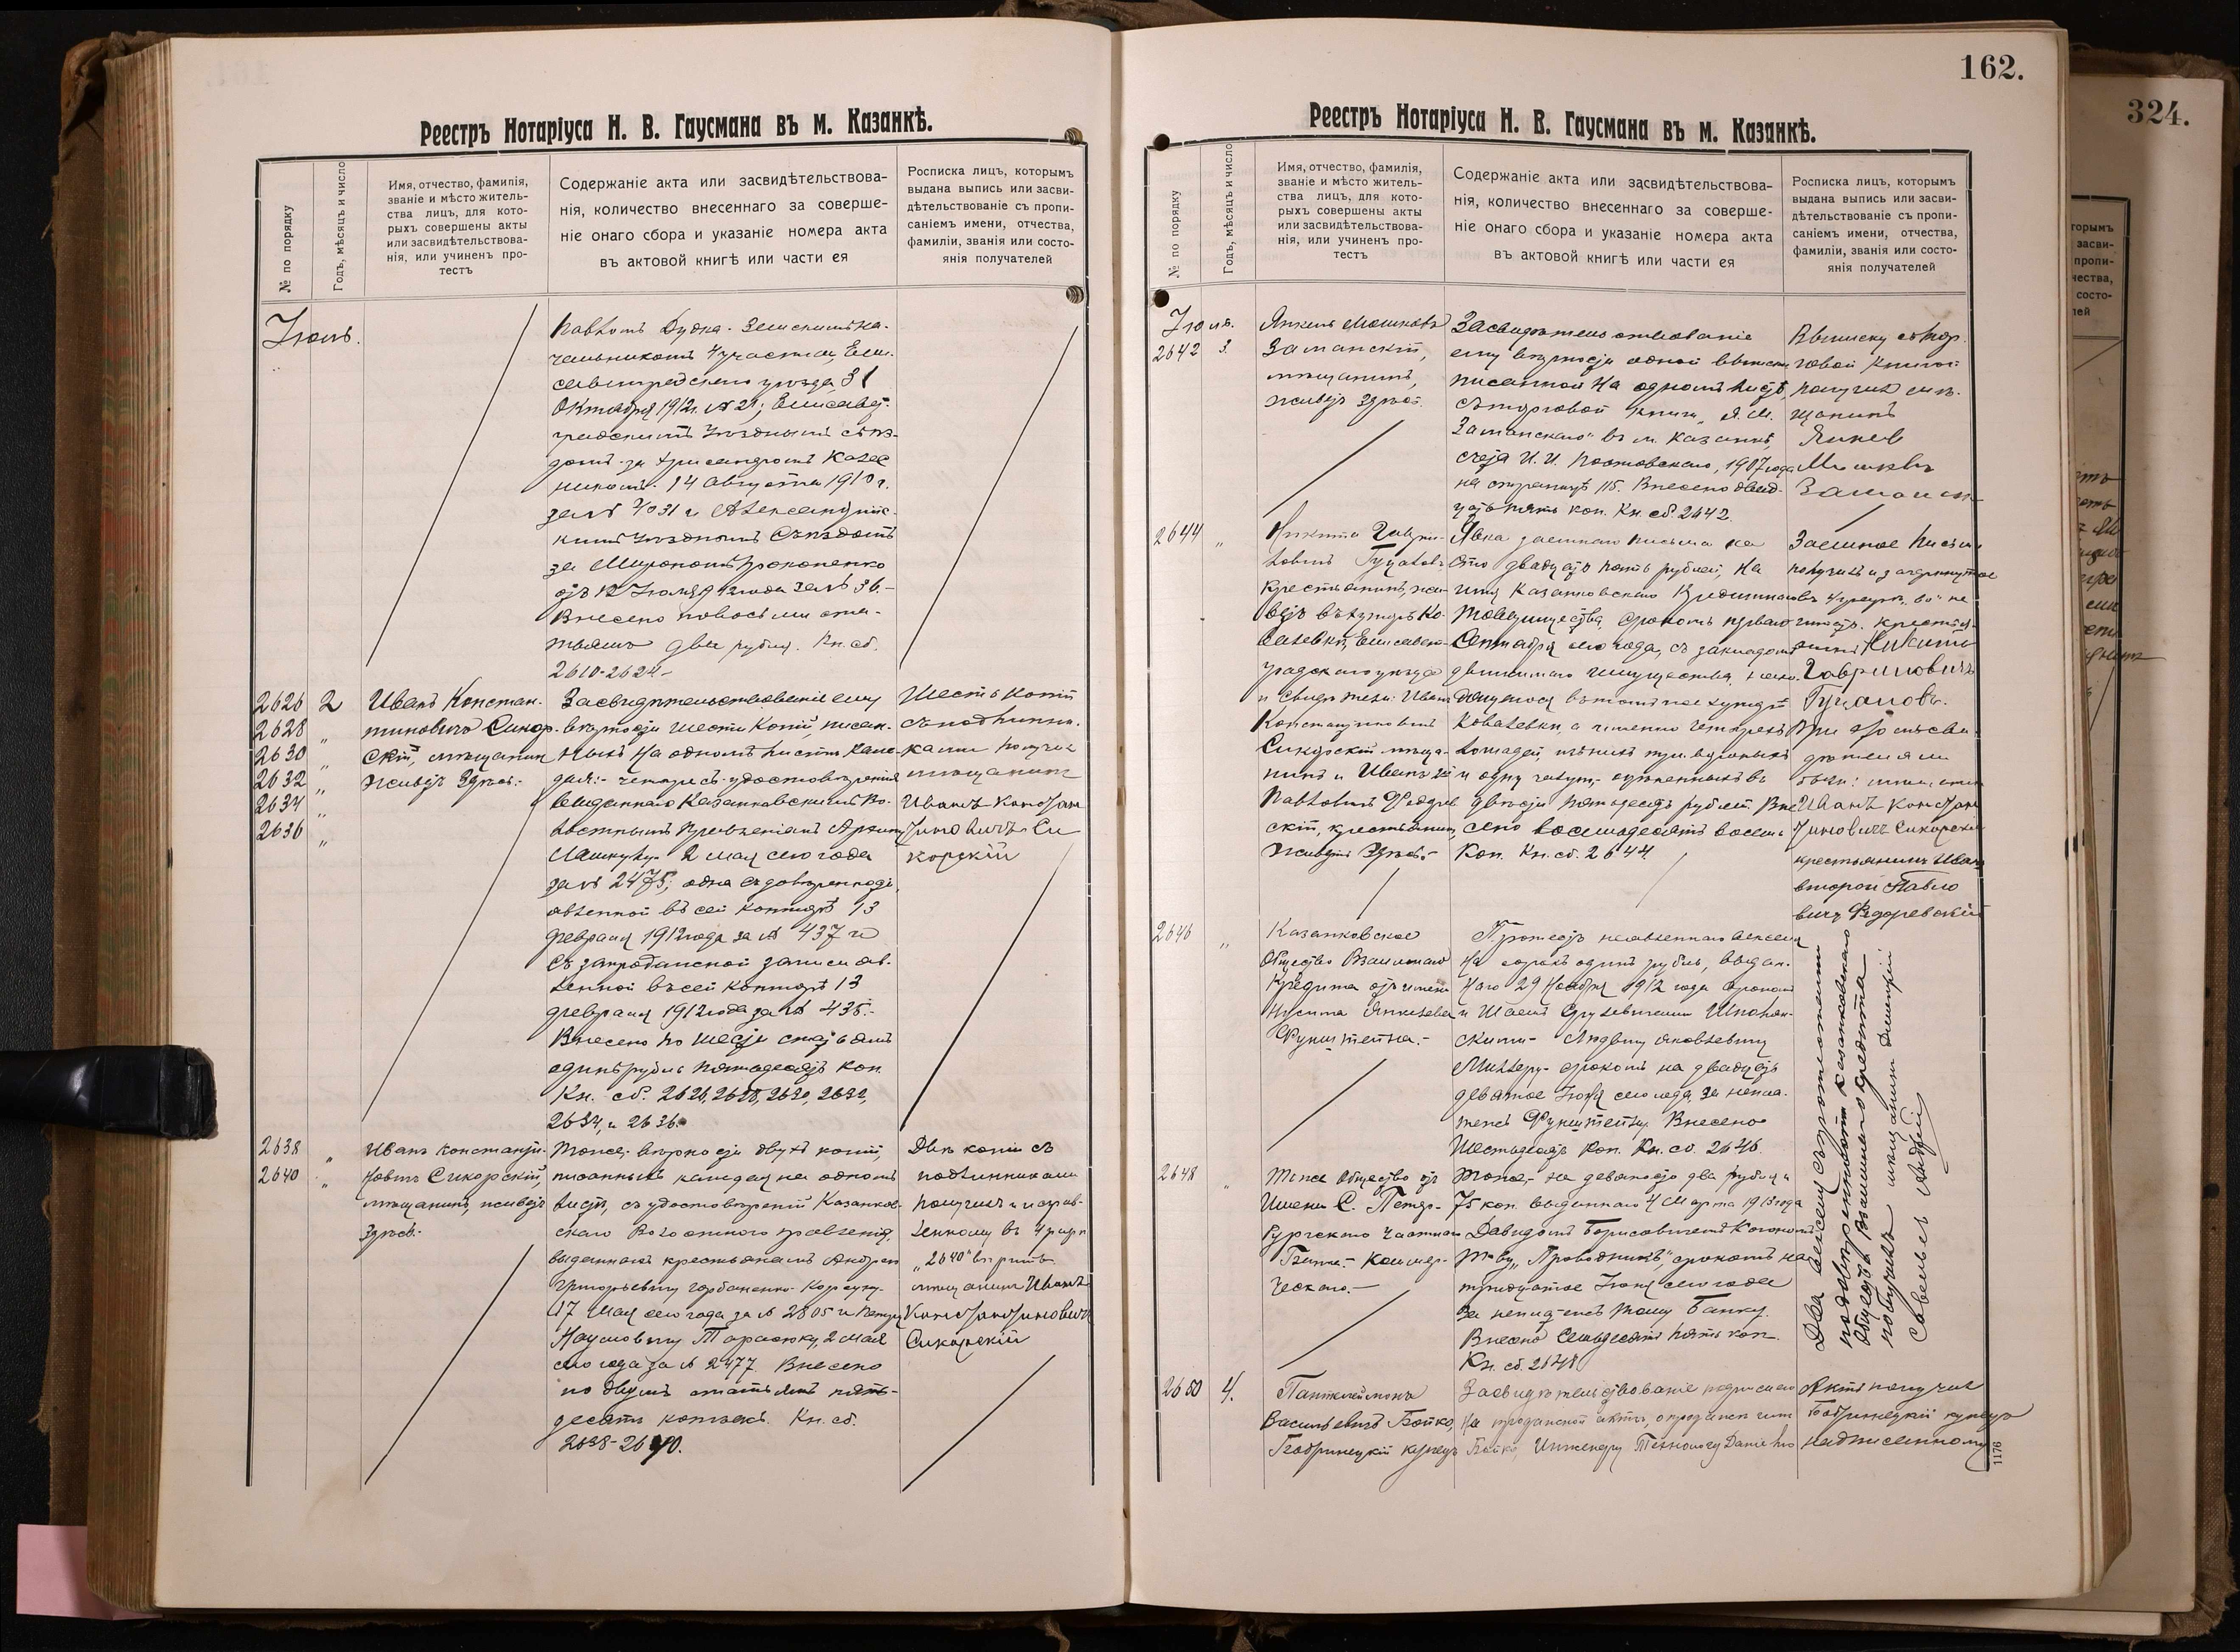 Реестръ Нотаріуса Н. В. Гаусмана въ м. Казанкѣ.
№ по порядку
Годъ, мѣсяцъ и число
Имя, отчество, фамилія,
званіе и мѣсто житель-
ства лицъ, для кото-
рыхъ совершены акты
или засвидѣтельствова-
нія, или учиненъ про-
тестъ
Содержаніе акта или засвидѣтельствова-
нія, количество внесеннаго за соверше-
ніе онаго сбора и указаніе номера акта
въ актовой книгѣ или части ея
Росписка лицъ, которымъ
выдана выпись или засви-
дѣтельствованіе съ пропи-
саніемъ имени, отчества,
фамиліи, званія или состо-
янія получателей
Іюль.
Дудка- Земскимъ На-
чальникомъ 4 участка, Ели-
саветградскаго уѣзда 31
Октября 1912г. № 21; Елисавет-
градскимъ Уѣзднымъ Съѣз-
домъ за
14 Августа 1910 г.
за № 4031 и Александрійс-
кимъ Уѣзднымъ Съѣздомъ
за Мирономъ Прокопенко
отъ 12 Іюля 912 года за № 36.-
Внесено по восьми ста-
тьямъ два рубля. Кн. сб.
2610-2624-
2626 2
2628 "
2630 "
2632 "
2634 "
2636 "
Иванъ Констан-
тиновичъ Сикор-
скій, мѣщанинъ
живетъ здѣсь.-
Засвидѣтельствованіе ему
вѣрности шести копій, писан-
ныхъ на одномъ листѣ каж-
дая:- четыре съ удостовѣренія
выданнаго Казанковскимъ Во-
лостнымъ Правленіемъ
2 мая сего года
за № 2475; одна съ довѣренности,
явленной въ сей конторѣ 13
февраля 1912 года за № 437 и
съ запродажной записи яв-
ленной въ сей конторѣ 13
февраля 1912 года за № 435.-
Внесено по шести статьямъ
одинъ рубль пятьдесятъ коп.
Кн. сб. 2626, 2628, 2630, 2632,
2634, и 2636.
Шесть копій
съ подлинни-
ками получилъ
мѣщанинъ
Иванъ Констан
тиновичъ Си
корскій
2638 "
2640 "
Иванъ Константи-
новичъ Сикорскій,
мѣщанинъ, живетъ
здѣсь.-
Тоже,- вѣрности двухъ копій,
писанныхъ каждая на одномъ
листѣ, съ удостовѣреній Казанков-
скаго Волостного правленія,
выданныхъ крестьянамъ Андрею
Григорьевичу Горбаченко-
17 Мая сего года за № 2805 и
Наумовичу Тарасюку, 2 мая
сего года за № 2477. Внесено
по двумъ статьямъ пять-
десятъ копѣекъ. Кн. сб.
2638-2640.
Двѣ копіи съ
подлинниками
получилъ и исправ-
ленному въ 4 графѣ
"2640" вѣрить
мѣщанинъ Иванъ
Константиновичъ
Сикорскій
162.
Реестръ Нотаріуса Н. В. Гаусмана въ м. Казанкѣ.
№ по порядку
Годъ, мѣсяцъ и число
Имя, отчество, фамилія,
званіе и мѣсто житель-
ства лицъ, для кото-
рыхъ совершены акты
или засвидѣтельствова-
нія, или учиненъ про-
тестъ
Содержаніе акта или засвидѣтельствова-
нія, количество внесеннаго за соверше-
ніе онаго сбора и указаніе номера акта
въ актовой книгѣ или части ея
Росписка лицъ, которымъ
выдана выпись или засви-
дѣтельствованіе съ пропи-
саніемъ имени, отчества,
фамиліи, званія или состо-
янія получателей
Іюль.
2642 3.
Янкель Мошковъ
Заманскій,
мѣщанинъ,
живетъ здѣсь.
Засвидѣтельствованіе
ему вѣрности одной выписи
писанной на одномъ листѣ,
съ торговой книги „Я. М.
Заманскаго" въ м. Казанкѣ,
счета И. И. 1907 года
на страницѣ 115. Внесено двад-
цать пять коп. Кн. сб. 2642.
Выписку съ тор-
говой книгой
получилъ мѣ-
щанинъ
Янкель
Мошковъ
Заманск
2644 "
Никита Гаври-
ловичъ Гуцаловъ
крестьянинъ, жи-
ветъ въ хуторѣ Ко-
валевкѣ, Елисавет-
градскаго уѣзда
и свидѣтели: Иванъ
Константиновичъ
Сикорскій мѣща-
нинъ и Иванъ 2й
Павловичъ Федорев
скій, крестьянинъ,
живутъ здѣсь.-
Явка заемнаго письма на
сто двадцать пять рублей, на
имя Казанковскаго Кредитнаго
Товарищества, срокомъ перваго
Сентября сего года, съ закладомъ
движимаго имущества, нахо-
дящагося въ томъ же хуторѣ
Ковалевки, а именно четырехъ
лошадей, изъ нихъ три вороныхъ
и одну чалую,- оцѣненныхъ въ
двѣсти пятьдесятъ рублей. Вне-
сено восемьдесятъ восемь
коп. Кн. сб. 2644.
Заемное письмо
получилъ и зачеркнутое
въ 4 графѣ „во" не
читать. крестья-
нинъ Никита
Гавриловичъ
Гуцаловъ.
При этомъ сви-
дѣтелями
были: мѣщанинъ
Иванъ Констан
тиновичъ Сикорскій
крестьянинъ Иванъ
второй Павло
вичъ Федоревскій
2646 "
Казанковское
Общество Взаимнаго
Кредита отъ имени
Нусима Янкелева
Функштейна.-
Протестъ неявленнаго векселя
на сорокъ одинъ рубль, выдан-
наго 29 Ноября 1912 года
и Шаемъ
скими- Людвигу Яковлевичу
Миллеру- срокомъ на двадцать
девятое Іюня сего года, за непла-
тежъ Функштейну. Внесено
шестьдесятъ коп. Кн. сб. 2646.
2648 "
Тоже Общество отъ
Имени С. Петер-
бургскаго Частнаго
Банка- Коммер-
ческаго.-
Тоже,- на девяносто два рубля и
75 коп. выданнаго 4 Марта 1913 года
Давидомъ Борисовичемъ
Т-ву „Проводникъ", срокомъ на
тридцатое Іюня сего года
за неплатежъ тому Банку.
Внесено семьдесятъ пять коп.
Кн. сб. 2648
Два векселя съ протестами
подовѣренности Казанковскаго
Общества Взаимнаго Кредита
получилъ мѣщанинъ Дмитрій
Савельев
2650 4.
Пантелеймонъ
Васильевичъ Бойко,
Бобринецкій купецъ
Засвидѣтельствованіе подписи его
на проданской актъ, о продажѣ имъ
Бойко, Инженеру Технологу
Актъ получилъ
Бобринецкій купецъ
надписанному
1176
324.